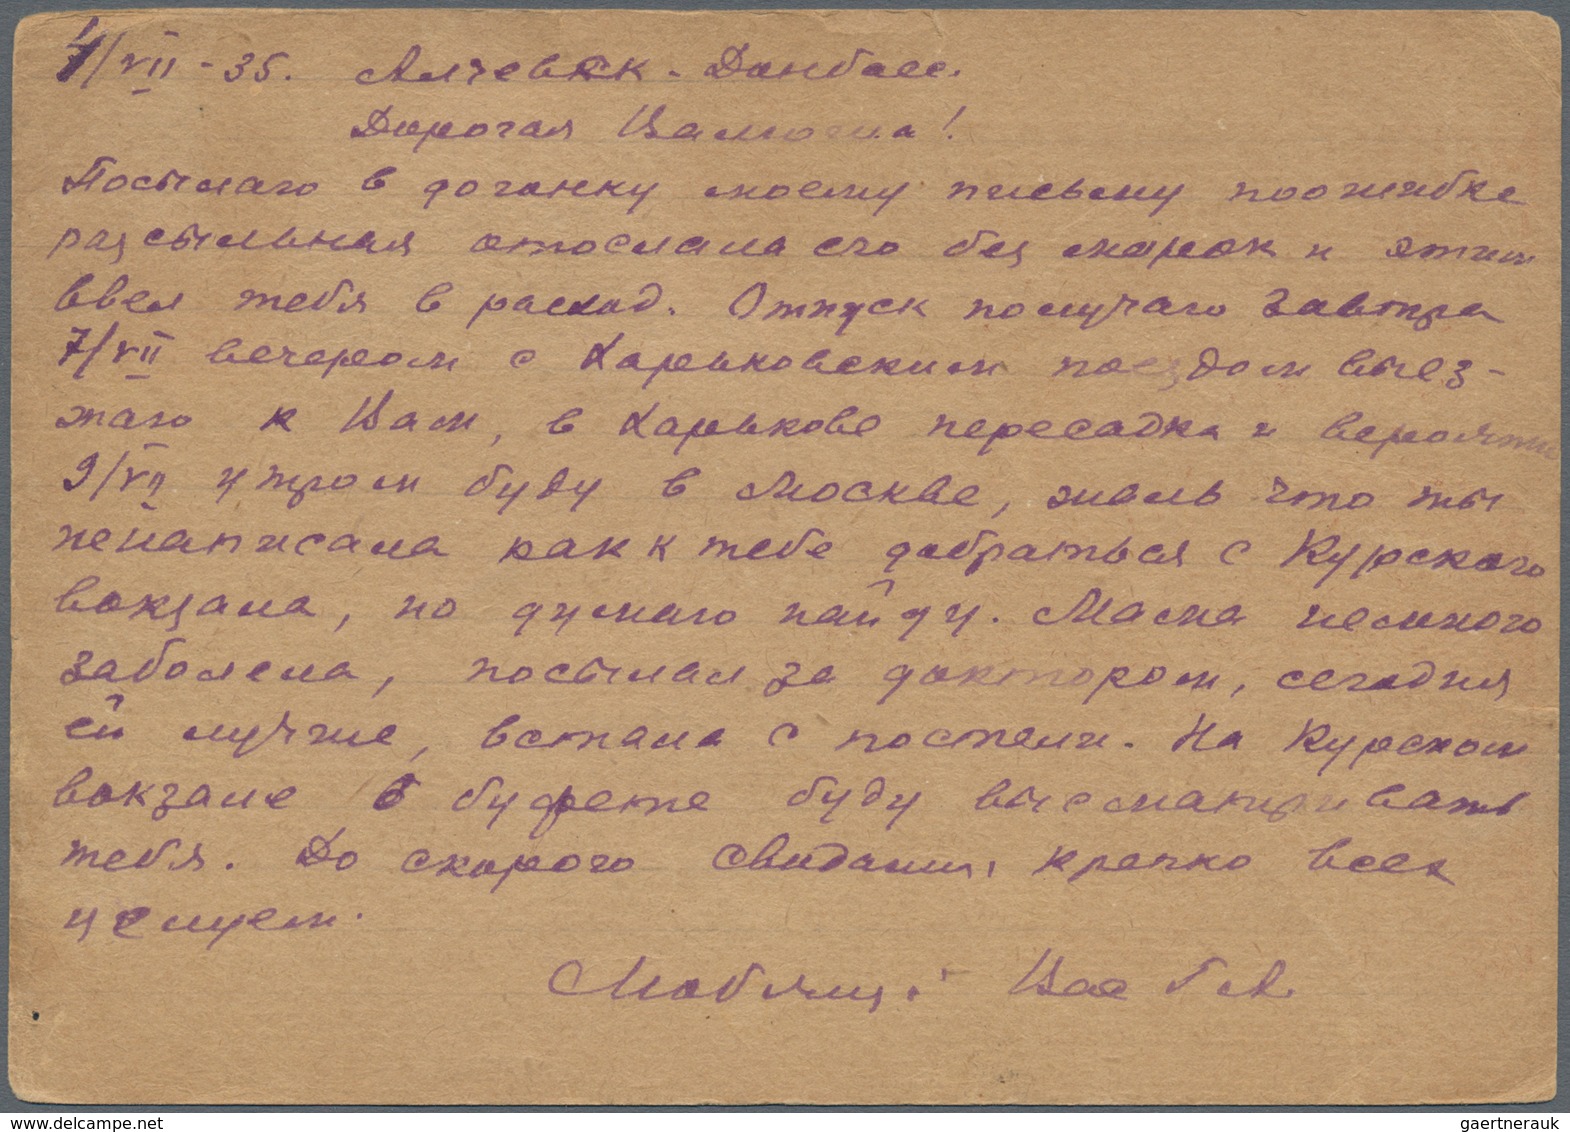 4/VII - 35. Алчевск - Донбасс.
Дорогая Валюша!
Посылаю в догонку моему письму поошибке
разсыльная отослала его без марок и этим
ввел тебя в расход. Отпуск получаю завтра
7/VII вечером с Харьковским поездом выез-
жаю к Вам, в Харькове пересадка и вероятно
9/VII утром буду в Москве, жаль что ты
ненаписала как к тебе добраться с Курского
вокзала, но думаю найду. Мама немного
заболела, посылал за доктором, сегодня
ей лучше, встала с постели. На Курском
вокзале в буфете буду высматривать
тебя. До скорого свидания, крепко всех
целуем.
Любящий Вас
www.delcampe.net
gaertnerauk